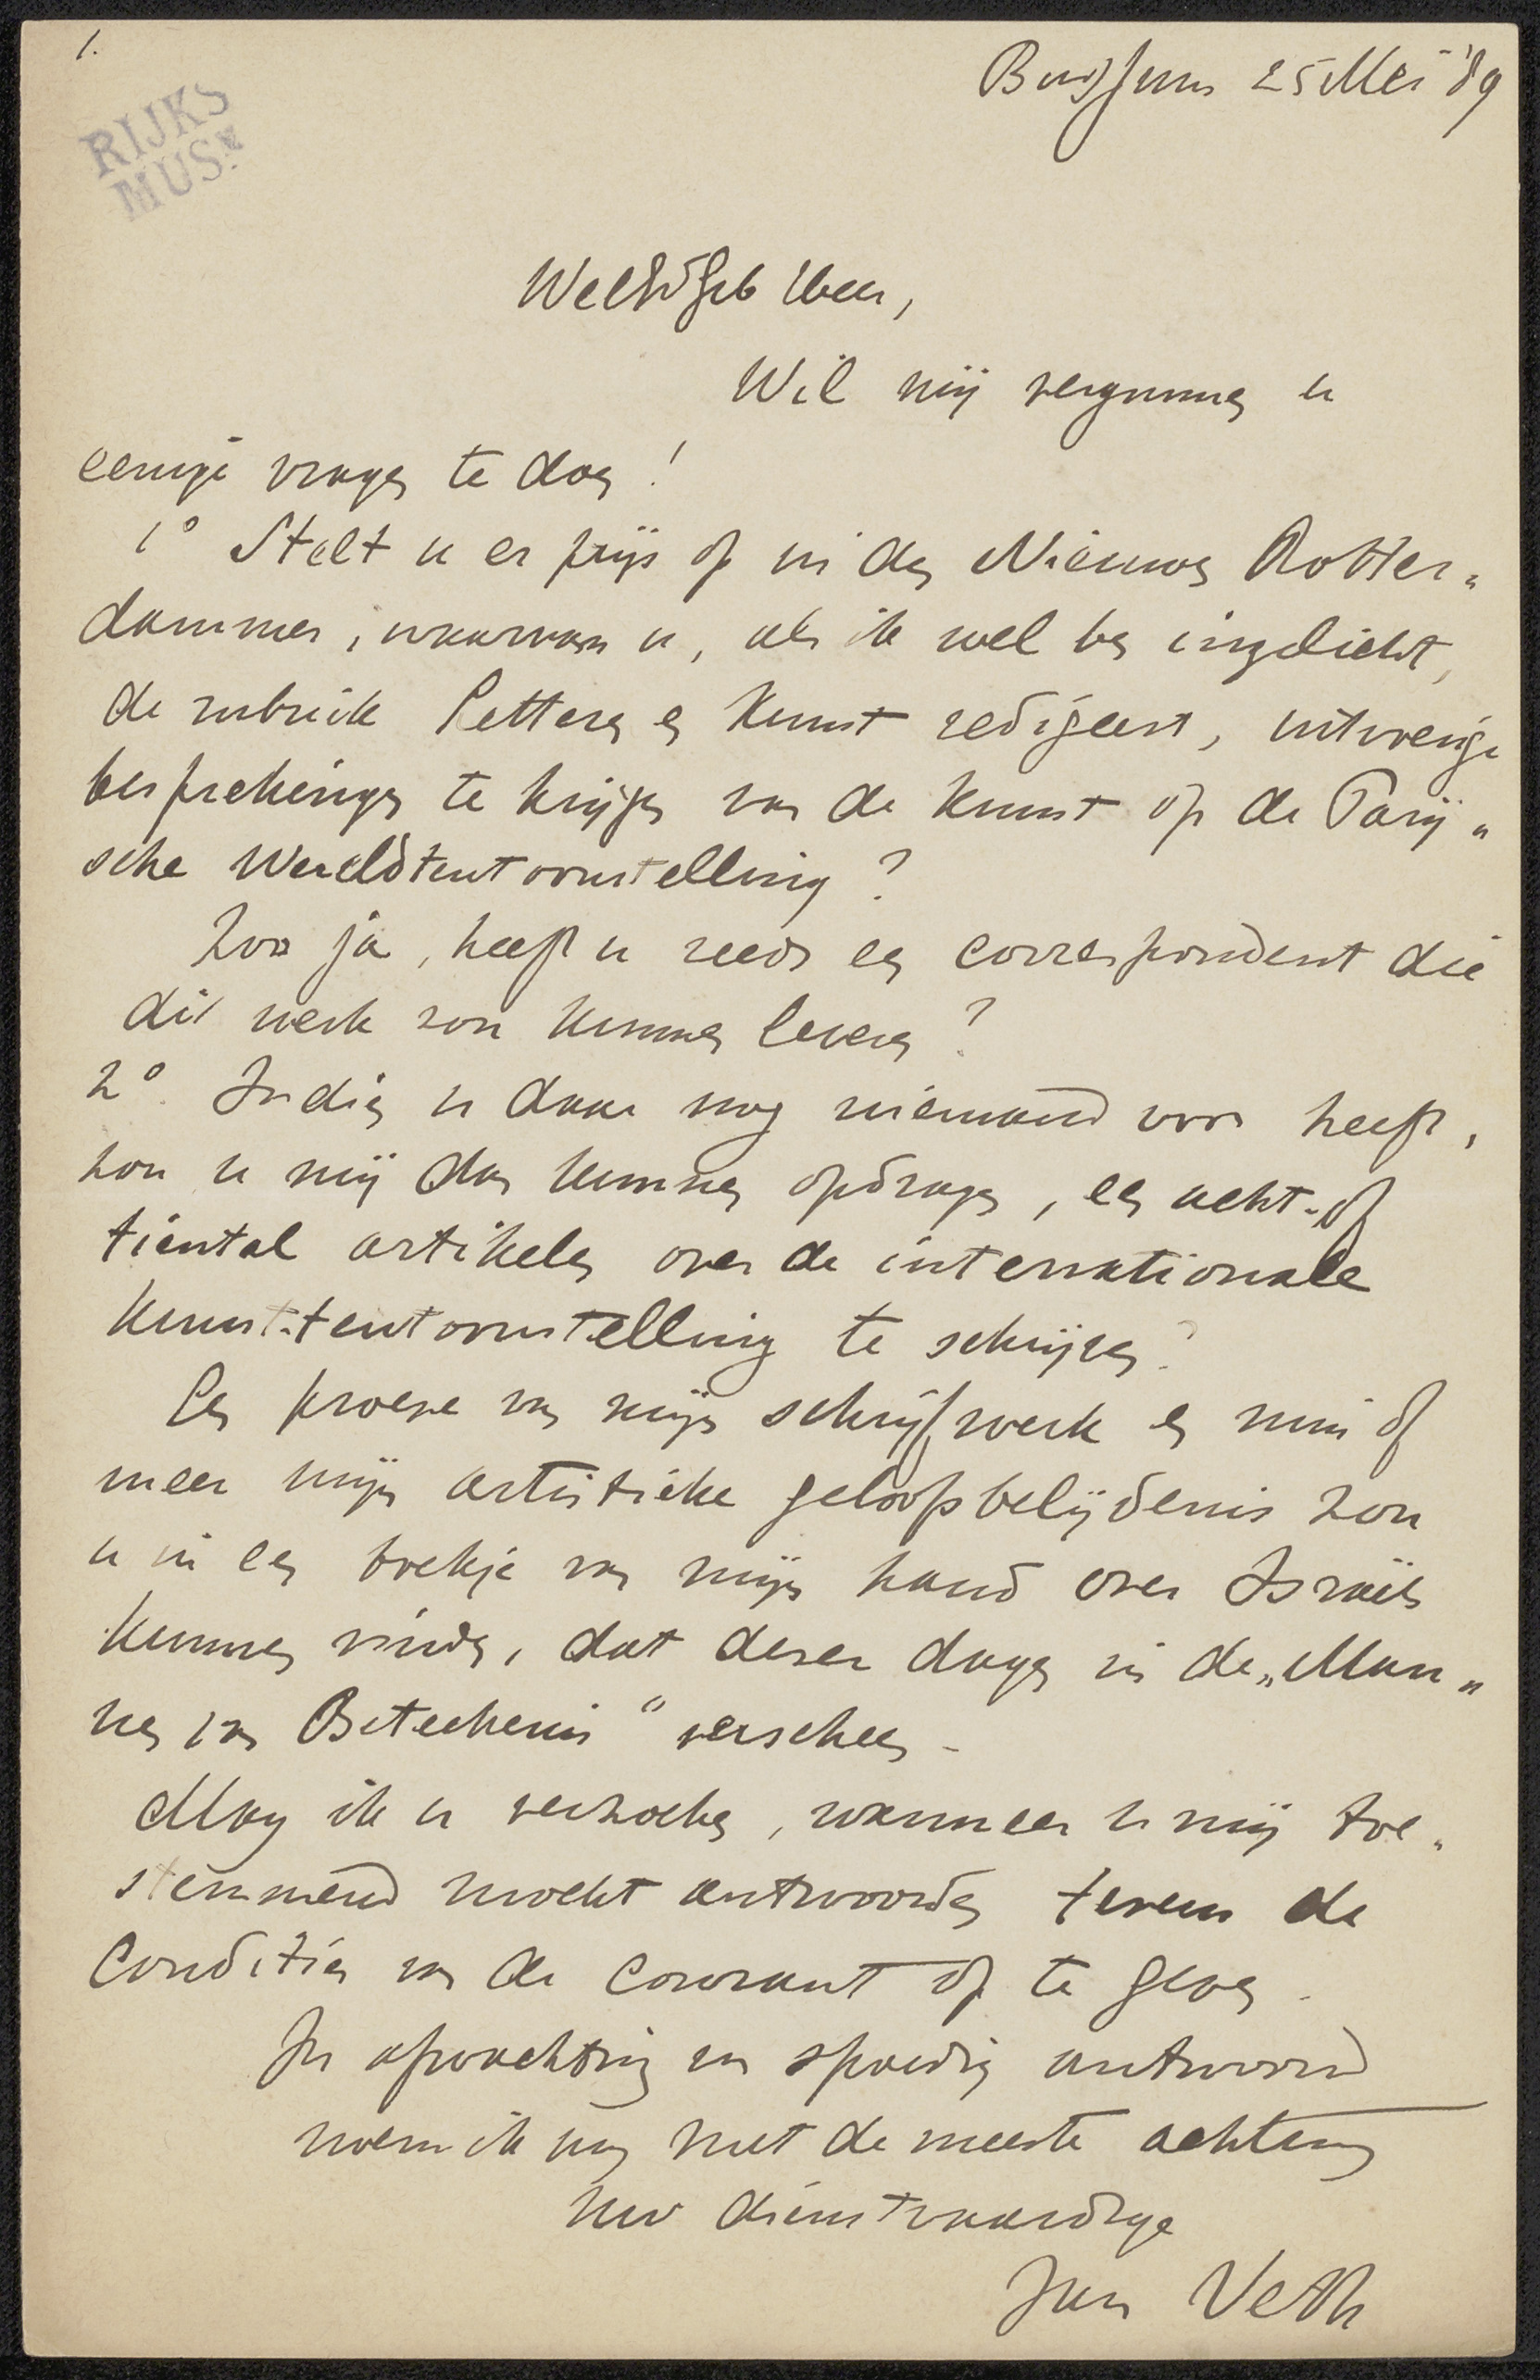 1.
RIJKS
MUSM
Bussum 25 Mei '89
WelEdGeb Heer,
Wil mij vergunnen u
eenige vragen te doen!
1° Stelt u er prijs op in den Nieuwen Rotter„
dammer, waarvan u, als ik wel ben ingelicht,
de rubriek Letteren en Kunst redigeert, uitvoerige
besprekingen te krijgen van de kunst op de Parij„
sche Wereldtentoonstelling?
Zoo ja, heeft u reeds een correspondent die
dit werk zou kunnen leveren?
2°. Indien u daar nog niemand voor heeft,
zou u mij dan kunnen opdragen, een acht- of
tiental artikelen over de internationale
kunst-tentoonstelling te schrijven?
Een proeve van mijn schrijfwerk en min of
meer mijn artistieke geloofsbelijdenis zou
u in een boekje van mijn hand over Israëls
kunnen vinden, dat dezer dagen in de „Man„
nen van Beteekenis“ verscheen.
Mag ik u verzoeken, wanneer u mij toe„
stemmend mocht antwoorden tevens de
Conditiën van de courant op te geven.
In afwachting van spoedig antwoord
noem ik mij met de meeste achting
Uw dienstvaardige
Jan Veth